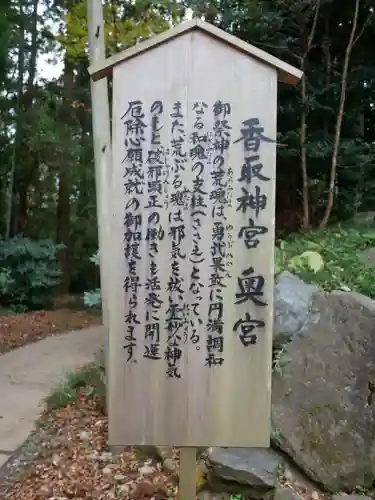 香取神宮 奥宮
御祭神の荒魂は、勇武果敢に円満調和
なる和魂の支柱(ささえ)となっている。
また、荒ぶる魂は邪気を祓い霊妙な神気
のもと破邪顕正の働きも活発に開運
厄除心願成就の御加護を得られます。